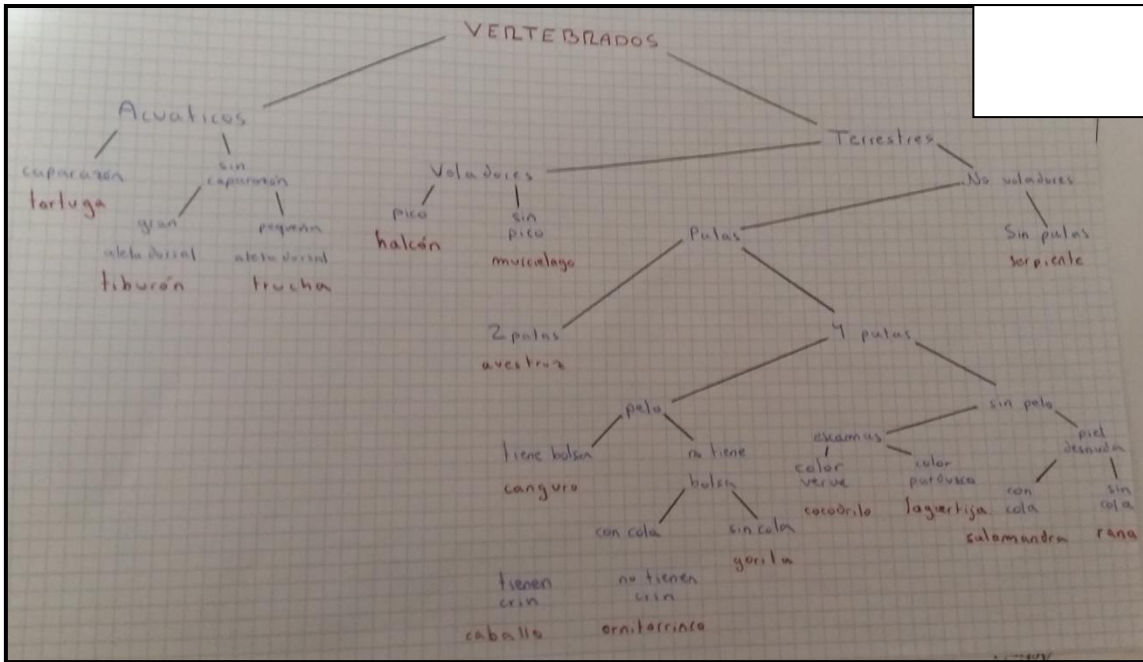 VERTEBRADOS
Acuaticos
Terrestres
caparazón
tortuga
sin
caparazón
gran
aleta dorsal
tiburón
pequeña
aleta dorsal
trucha
Voladores
pico
halcón
sin
pico
murcielago
No voladores
Patas
Sin patas
serpiente
2 patas
avestruz
4 patas
pelo
sin pelo
tiene bolsa
canguro
no tiene
bolsa
con cola
sin cola
gorila
tienen
crin
caballo
no tienen
crin
ornitorrinco
escamas
color
verde
cocodrilo
color
lagartija
piel
desnuda
con
cola
salamandra
sin
cola
rana